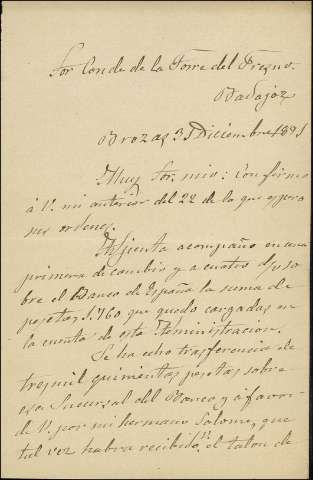 Sor Conde de la Torre del Fresno.
Badajoz
Brozas 31 Diciembre 1891
Muy Sor. mio: Confirmo
á V. mi anterior del 22 de la que espero
sus ordenes.
Adjunta acompaño en una
primera de cambio y a cuatro d/v so
bre el Banco de España la suma de
pesetas 5.760 que quedo cargadas en
la cuenta de esta Administracion.
Se ha echo trasferencia de
tresmil quinientas pesetas sobre
esa Sucursal del Banco y á favor
de V. por mi hermano Salome, que
tal vez habra recibido, el talon de